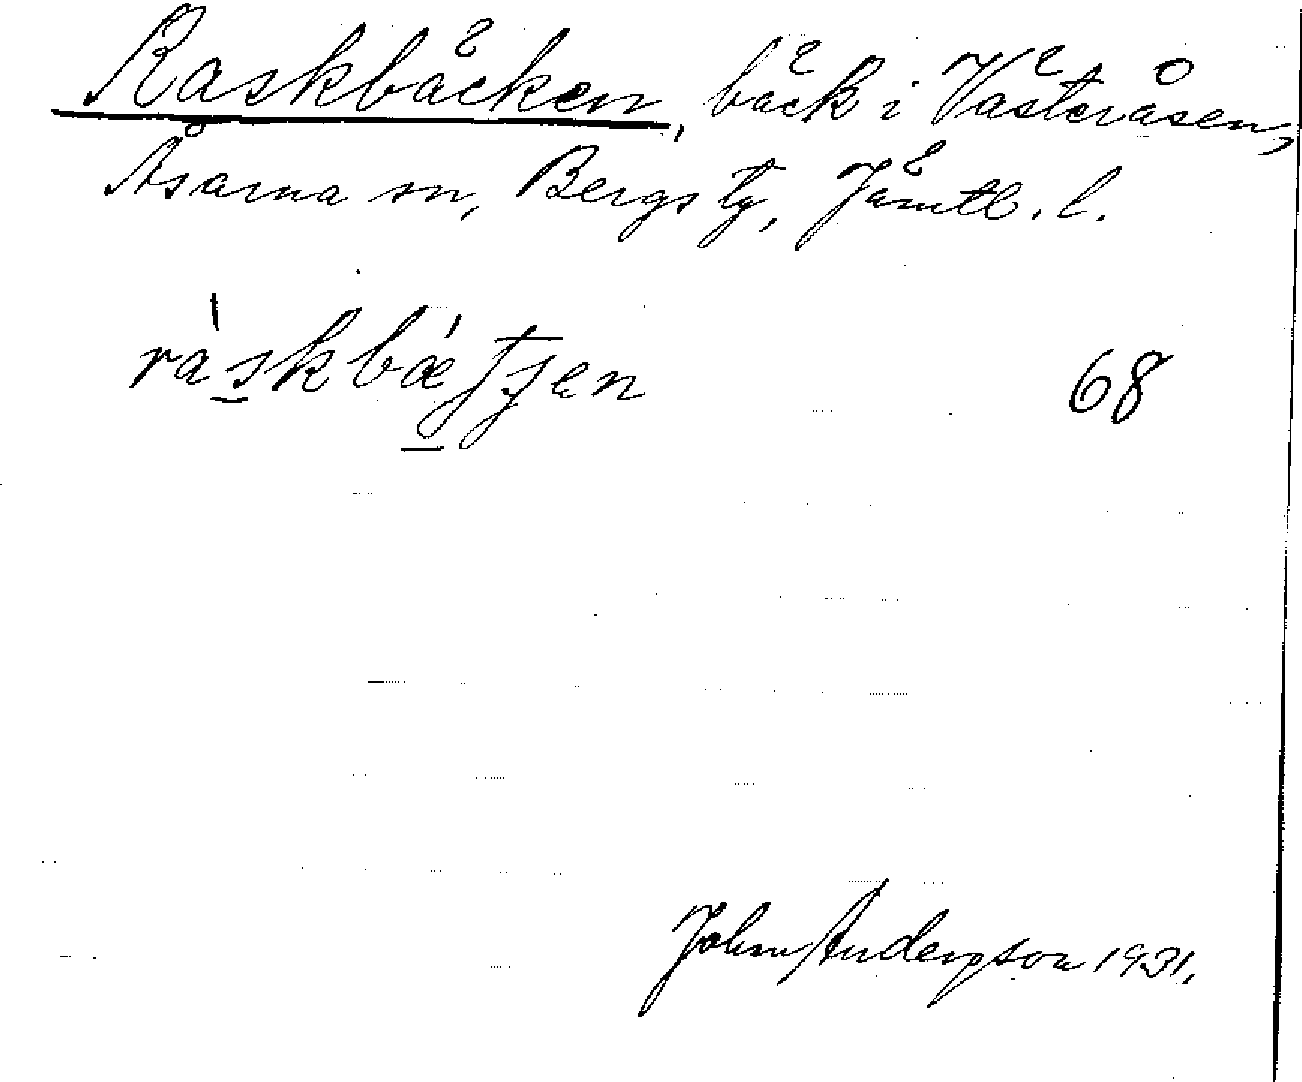 Raskbäcken, bäck i Västeråsen,
Åsarna sn, Bergs tg, Jämtl. l.
68
John Andersson 1931.